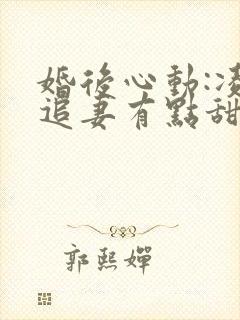 婚後心動:凌
追妻有點甜
郭熙嬋